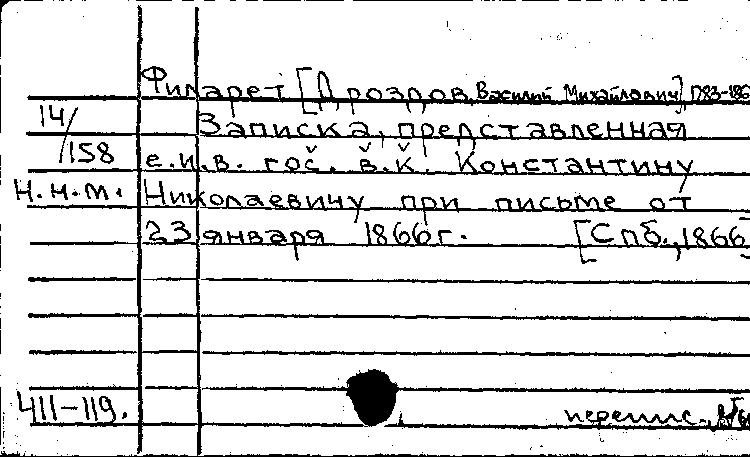 Филарет [Дроздов, Василий Михайлович] 1783-186
14/158
Записка, представленная
е.и.в. гос. в.к. Константину
Н.Н.М.
Николаевичу при письме от
23 января 1866г. [Спб., 1866]
411-119.
переплс.